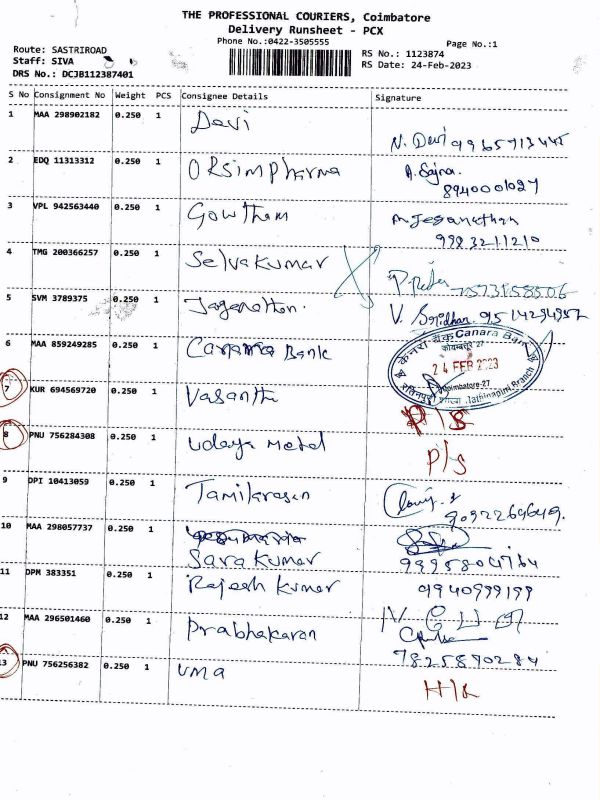 THE PROFESSIONAL COURIERS, Coimbatore
Delivery Runsheet - PCX
Phone No.:0422-3505555
Page No.:1
Route: SASTRIROAD
Staff: SIVA
DRS No.: DCJB112387401
RS No.: 1123874
RS Date: 24-Feb-2023
S No Consignment No Weight PCS Consignee Details Signature
1 MAA 298902182 0.250 1 Devi
N. Devi 9965713445
2 EDQ 11313312 0.250 1 ORSim Pharma
A. Sajna.
8940001027
3 VPL 942563440 0.250 1 Gowtham
Jeganathan
9983211210
4 TMG 200366257 0.250 1 Selvakumar
Priba 7573158506
5 SVM 3789375 0.250 1 Jaganathan.
V. Sridhan. 9514294957
6 MAA 859249285 0.250 1 Canara Bank
केनरा बैंक Canara Bank
कोयम्बत्तूर-27
24 FEB 2023
Coimbatore-27
शाखा Rathinapuri Branch
7 KUR 694569720 0.250 1 Vasantha
P/S
8 PNU 756284308 0.250 1 Udaya Metal
P/S
9 DPI 10413059 0.250 1 Tamilarasan
9092269649.
10 MAA 298057737 0.250 1
Sara Kumar
9995804764
11 DPM 383351 0.250 1 Rajesh Kumar
9940999199
12 MAA 296501460 0.250 1 Prabhakaran
7825890284
13 PNU 756256382 0.250 1 Uma
H/K